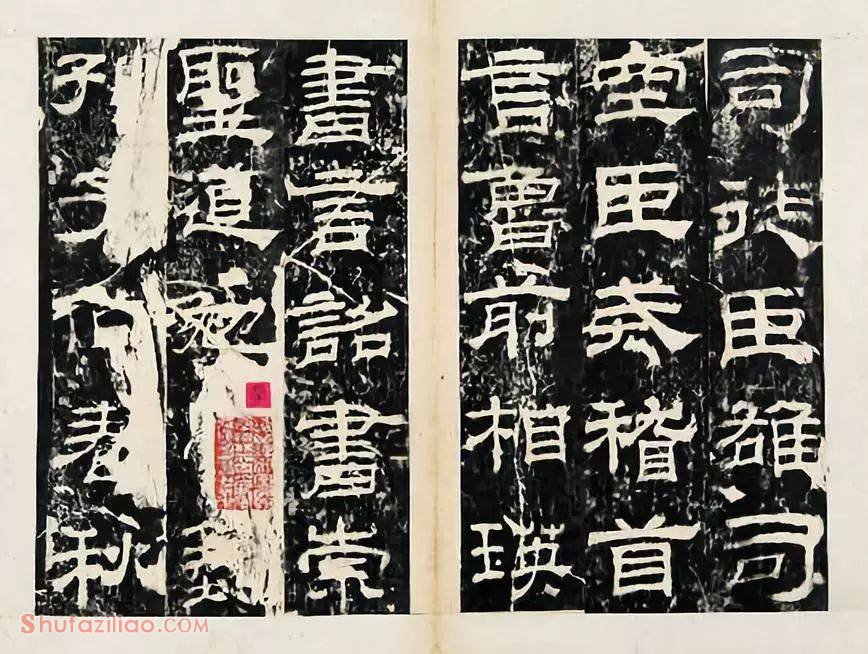 司徒臣雄司
空臣戒稽首
言魯前相瑛
書言詔書崇
聖道勉
孔子作春秋
Shufaziliao.COM